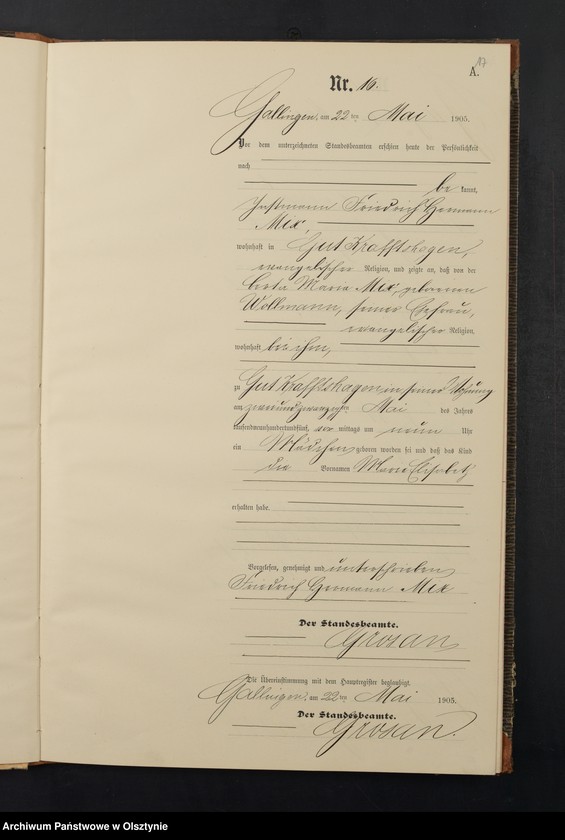 17
A.
Nr. 16.
Gallingen, am 22 ten Mai 1905.
Vor dem unterzeichneten Standesbeamten erschien heute der Persönlichkeit
nach
be kannt,
Instmann Friedrich Hermann
Mex,
wohnhaft in Gut Krafftshagen,
evangelischer Religion, und zeigte an, daß von der
Maria Mex, geborenen
Wollmann, seiner Ehefrau,
evangelischer Religion,
wohnhaft bei ihm,
zu Gut Krafftshagen in seiner Wohnung
am zweiundzwanzigsten Mai des Jahres
tausendneunhundertundfünf, vor mittags um neun Uhr
ein Mädchen geboren worden sei und daß das Kind
die Vornamen Maria Elisabeth
erhalten habe.
Vorgelesen, genehmigt und unterschrieben
Friedrich Hermann Mex
Der Standesbeamte.
Grosan
Die Übereinstimmung mit dem Hauptregister beglaubigt.
Gallingen, am 22 ten Mai 1905.
Der Standesbeamte.
Grosan.
Archiwum Państwowe w Olsztynie